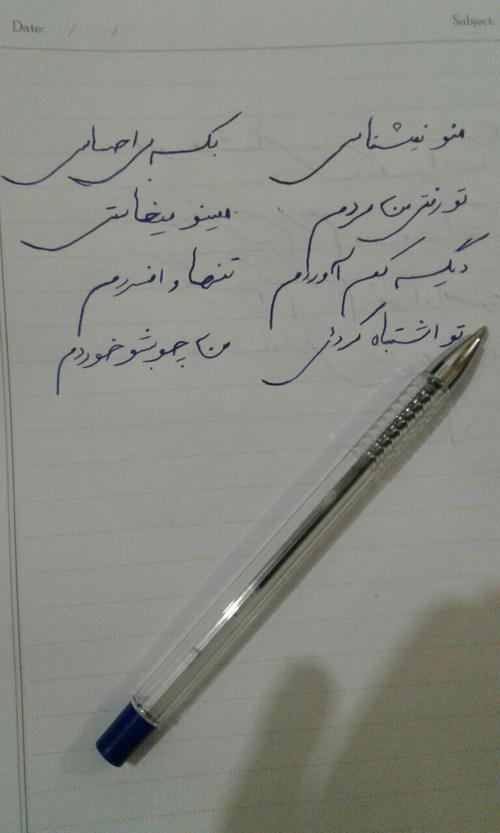 Date: / / Subject:
منو نمیشناسی بی احصاسی
تو رفتی من مردم همینو میخاستی
دیگه کم آوردم تنها و افسردم
تو اشتباه کردی من چوبشو خوردم